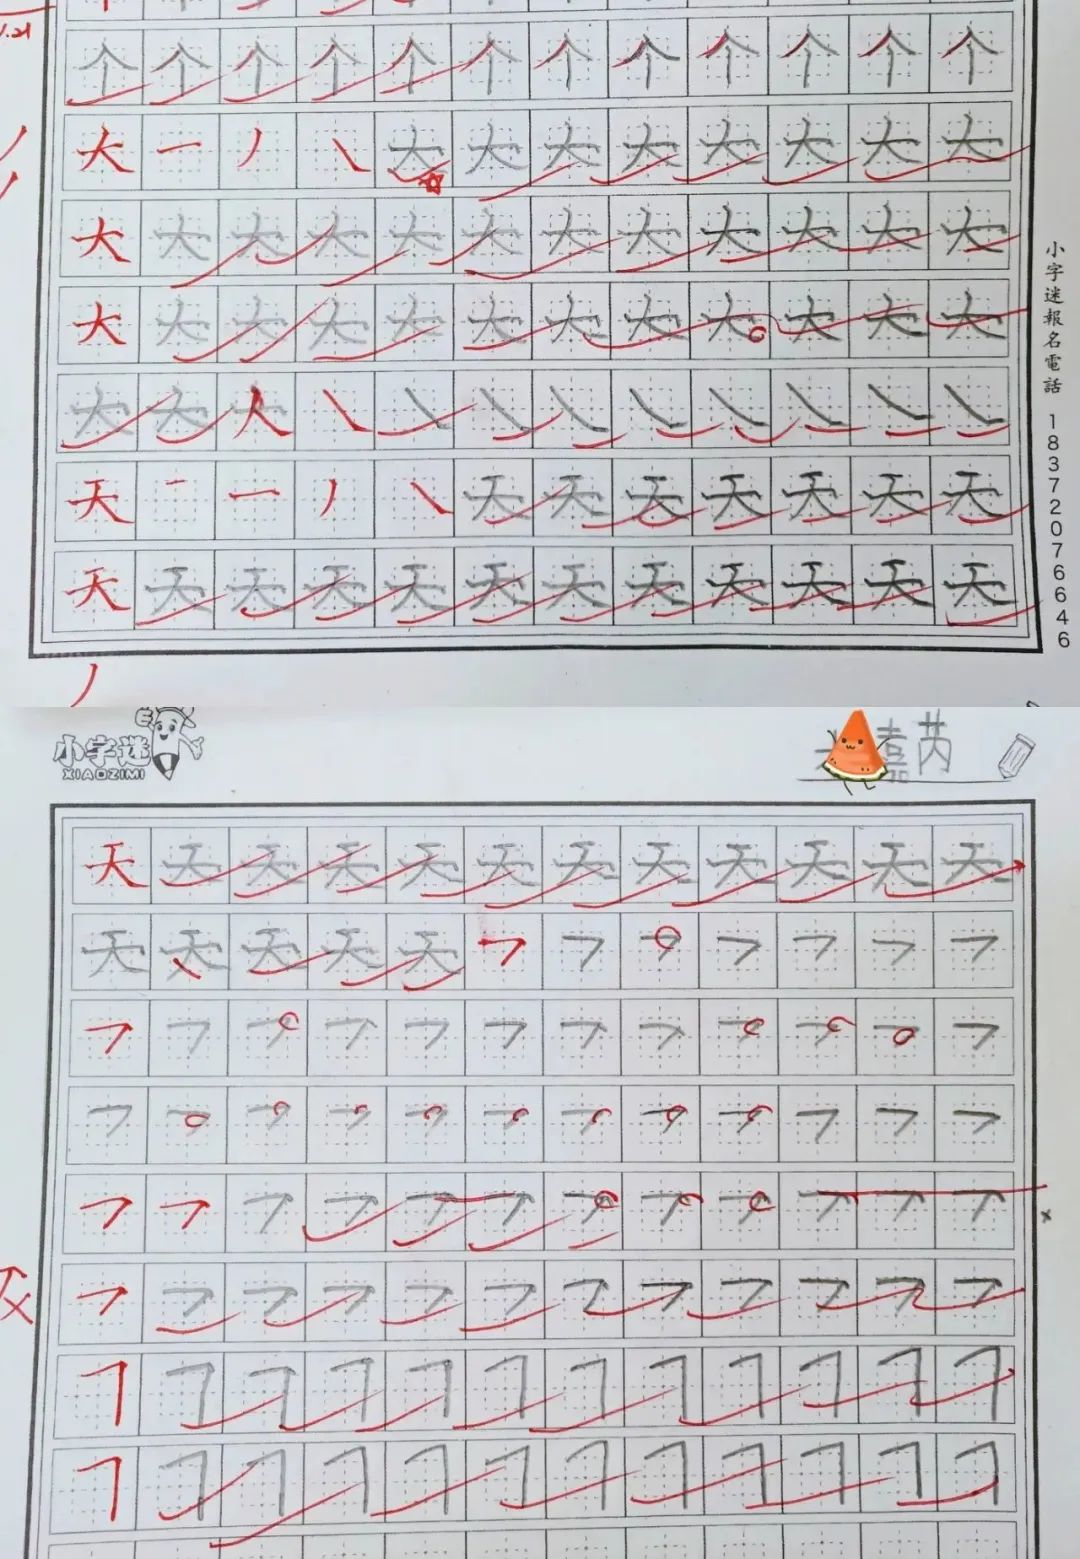 个 个 个 个 个 个 个 个 个 个 个 个
大 一 丿 ㇏ 大 大 大 大 大 大 大 大
大 大 大 大 大 大 大 大 大 大 大 大
大 大 大 大 大 大 大 大 大 大 大 大
大 大 人 ㇏ ㇏ ㇏ ㇏ ㇏ ㇏ ㇏ ㇏ ㇏
天 一 一 丿 ㇏ 天 天 天 天 天 天 天
天 天 天 天 天 天 天 天 天 天 天 天
小字迷報名電話 18372076646
小字迷
XIAOZIMI
嘉芮
天 天 天 天 天 天 天 天 天 天 天 天
天 天 天 天 天 ㇇ ㇇ ㇇ ㇇ ㇇ ㇇ ㇇
㇇ ㇇ ㇇ ㇇ ㇇ ㇇ ㇇ ㇇ ㇇ ㇇ ㇇ ㇇
㇇ ㇇ ㇇ ㇇ ㇇ ㇇ ㇇ ㇇ ㇇ ㇇ ㇇ ㇇
㇇ ㇇ ㇇ ㇇ ㇇ ㇇ ㇇ ㇇ ㇇ ㇇ ㇇ ㇇
㇇ ㇇ ㇇ ㇇ ㇇ ㇇ ㇇ ㇇ ㇇ ㇇ ㇇ ㇇
㇕ ㇕ ㇕ ㇕ ㇕ ㇕ ㇕ ㇕ ㇕ ㇕ ㇕ ㇕
㇕ ㇕ ㇕ ㇕ ㇕ ㇕ ㇕ ㇕ ㇕ ㇕ ㇕ ㇕